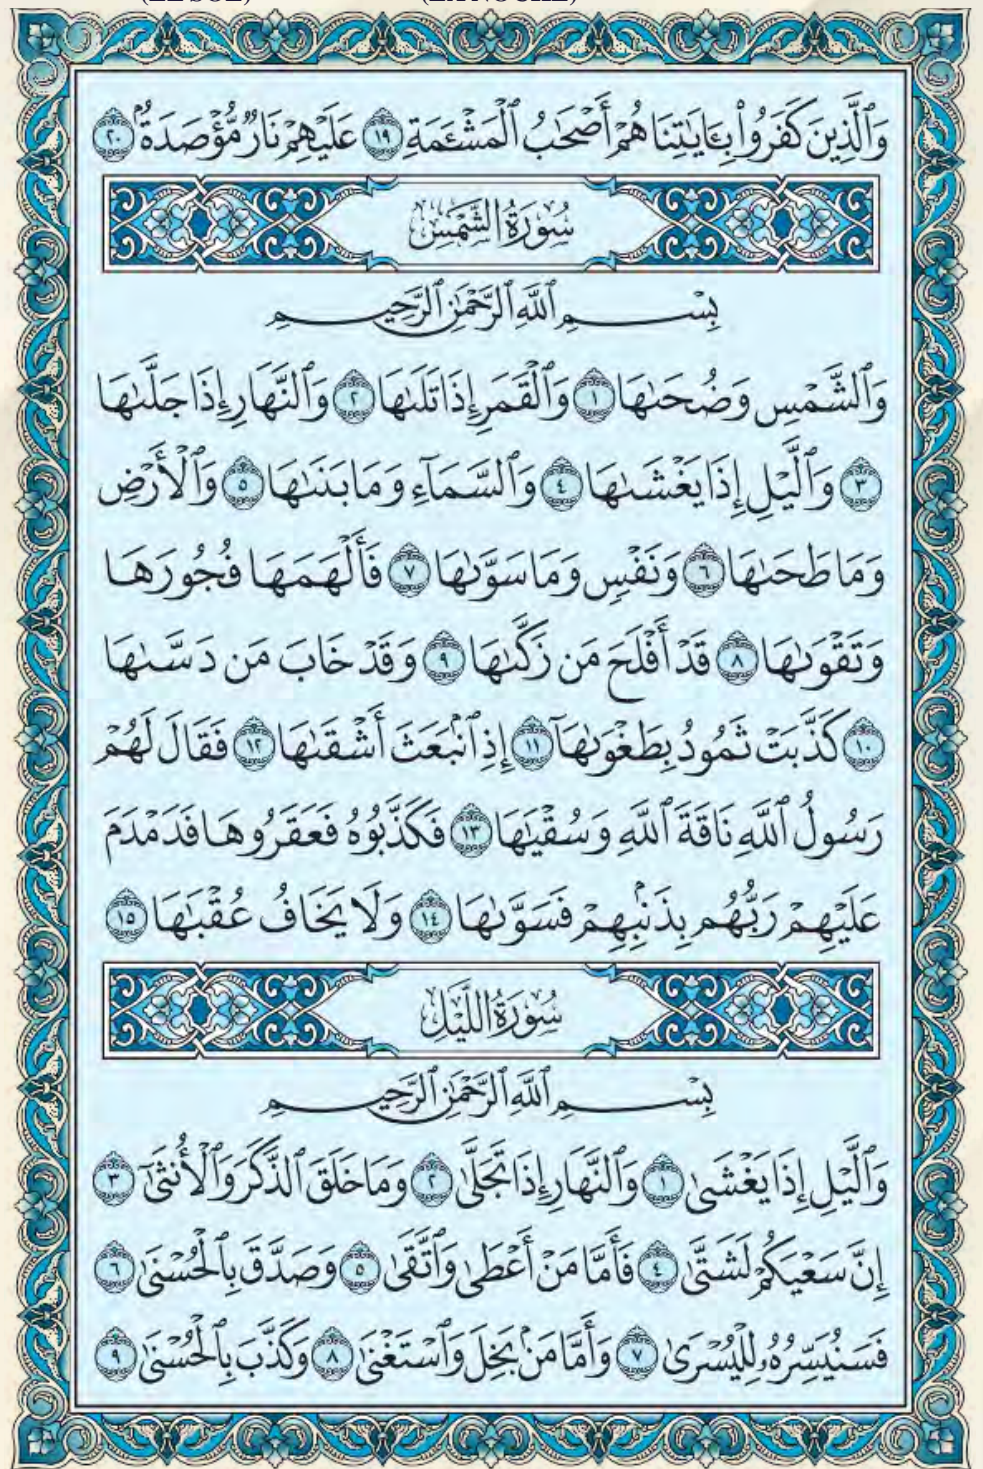 (EL SOL) (LA NOCHE)
وَٱلَّذِينَ كَفَرُوا۟ بِـَٔايَـٰتِنَا هُمْ أَصْحَـٰبُ ٱلْمَشْـَٔمَةِ ١٩ عَلَيْهِمْ نَارٌ مُّؤْصَدَةٌۢ ٢٠
سُورَةُ الشَّمْسِ
بِسْمِ ٱللَّهِ ٱلرَّحْمَـٰنِ ٱلرَّحِيمِ
وَٱلشَّمْسِ وَضُحَىٰهَا ١ وَٱلْقَمَرِ إِذَا تَلَىٰهَا ٢ وَٱلنَّهَارِ إِذَا جَلَّىٰهَا
٣ وَٱلَّيْلِ إِذَا يَغْشَىٰهَا ٤ وَٱلسَّمَآءِ وَمَا بَنَىٰهَا ٥ وَٱلْأَرْضِ
وَمَا طَحَىٰهَا ٦ وَنَفْسٍ وَمَا سَوَّىٰهَا ٧ فَأَلْهَمَهَا فُجُورَهَا
وَتَقْوَىٰهَا ٨ قَدْ أَفْلَحَ مَن زَكَّىٰهَا ٩ وَقَدْ خَابَ مَن دَسَّىٰهَا
١٠ كَذَّبَتْ ثَمُودُ بِطَغْوَىٰهَآ ١١ إِذِ ٱنۢبَعَثَ أَشْقَىٰهَا ١٢ فَقَالَ لَهُمْ
رَسُولُ ٱللَّهِ نَاقَةَ ٱللَّهِ وَسُقْيَـٰهَا ١٣ فَكَذَّبُوهُ فَعَقَرُوهَا فَدَمْدَمَ
عَلَيْهِمْ رَبُّهُم بِذَنۢبِهِمْ فَسَوَّىٰهَا ١٤ وَلَا يَخَافُ عُقْبَـٰهَا ١٥
سُورَةُ اللَّيْلِ
بِسْمِ ٱللَّهِ ٱلرَّحْمَـٰنِ ٱلرَّحِيمِ
وَٱلَّيْلِ إِذَا يَغْشَىٰ ١ وَٱلنَّهَارِ إِذَا تَجَلَّىٰ ٢ وَمَا خَلَقَ ٱلذَّكَرَ وَٱلْأُنثَىٰٓ ٣
إِنَّ سَعْيَكُمْ لَشَتَّىٰ ٤ فَأَمَّا مَنْ أَعْطَىٰ وَٱتَّقَىٰ ٥ وَصَدَّقَ بِٱلْحُسْنَىٰ ٦
فَسَنُيَسِّرُهُۥ لِلْيُسْرَىٰ ٧ وَأَمَّا مَنۢ بَخِلَ وَٱسْتَغْنَىٰ ٨ وَكَذَّبَ بِٱلْحُسْنَىٰ ٩